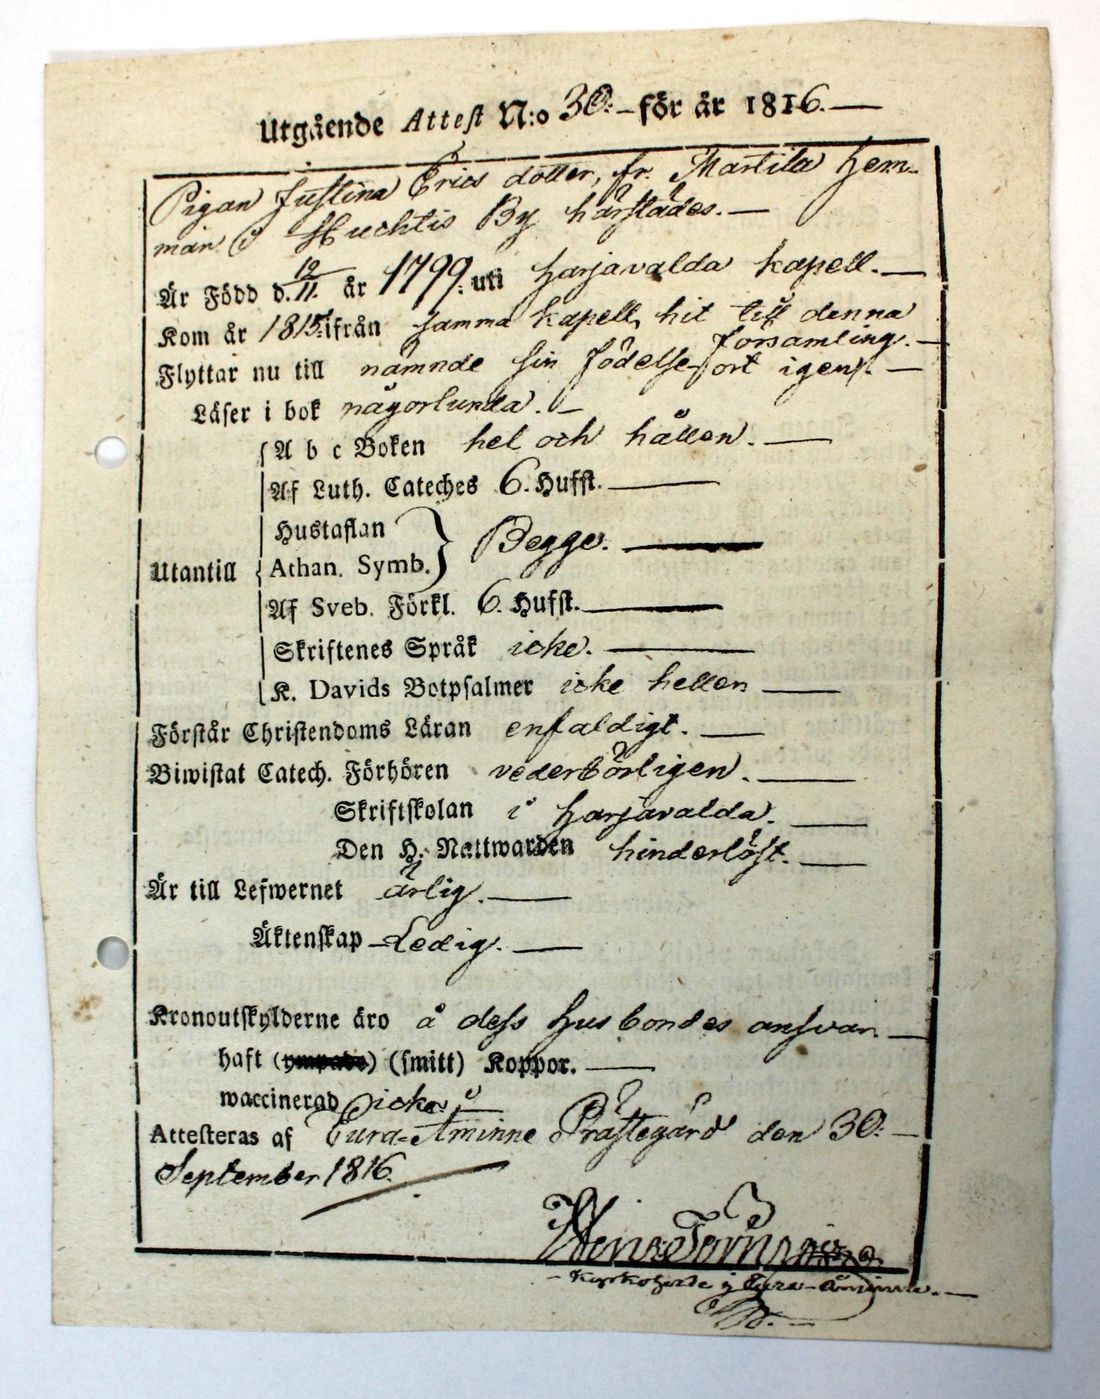 Utgående Attest N:o 30. för år 1816.
Pigan Justina Erics dotter, fr. Martila hem-
man i Huchtis By härstädes.
Är Född d. 12/11. år 1799. uti Harjavalda kapell.
Kom år 1815. ifrån samma kapell, hit till denna
församling.
Flyttar nu till nämnde sin födelse-ort igen.
Läser i bok någorlunda.
A b c Boken hel och hållen.
Af Luth. Cateches 6. Hufst.
Hustaflan
Utantill Athan. Symb. Begge.
Af Sveb. Förkl. 6. Hufst.
Skriftenes Språk icke.
K. Davids Botpsalmer icke heller
Förstår Christendoms Läran enfaldigt.
Biwistat Catech. Förhören vederbörligen.
Skriftskolan i Harjavalda.
Den H. Nattwarden hinderlöst.
Är till Lefwernet ärlig.
Äktenskap Ledig.
Kronoutskylderne äro å dess husbondes ansvar.
haft (ympade) (smitt) Koppor.
waccinerad icke
Attesteras af Eura-Åminne Prästegård den 30.
September 1816.
Kyrkoherde i Eura-Åminne.